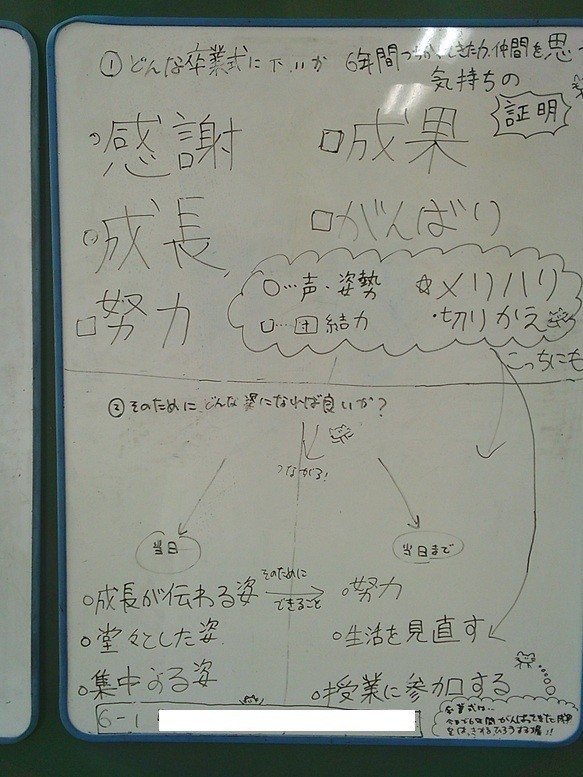 ①どんな卒業式に か 6年間 きた力、仲間を思
気持ちの
証明
○感謝 □成果
○成長 □がんばり
□努力
○…声・姿勢 ☆メリハリ
□…団結力 ・切りかえ
こっちにも
②そのために どんな姿になれば良いか?
つながる!
当日 当日まで
○成長が伝わる姿 そのために できること ○努力
○堂々とした姿 ○生活を見直す
○集中する姿 ○授業に参加する
6-1
卒業式は…